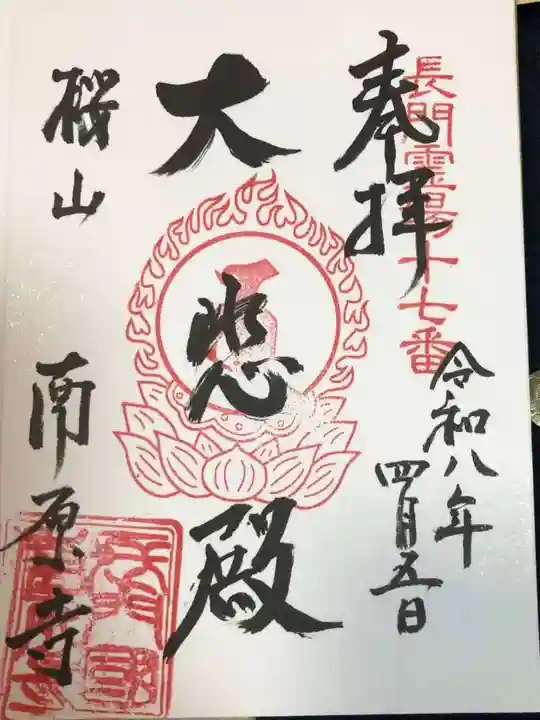 長門霊場十七番
奉拝
令和八年
四月五日
大悲殿
桜山
南原寺